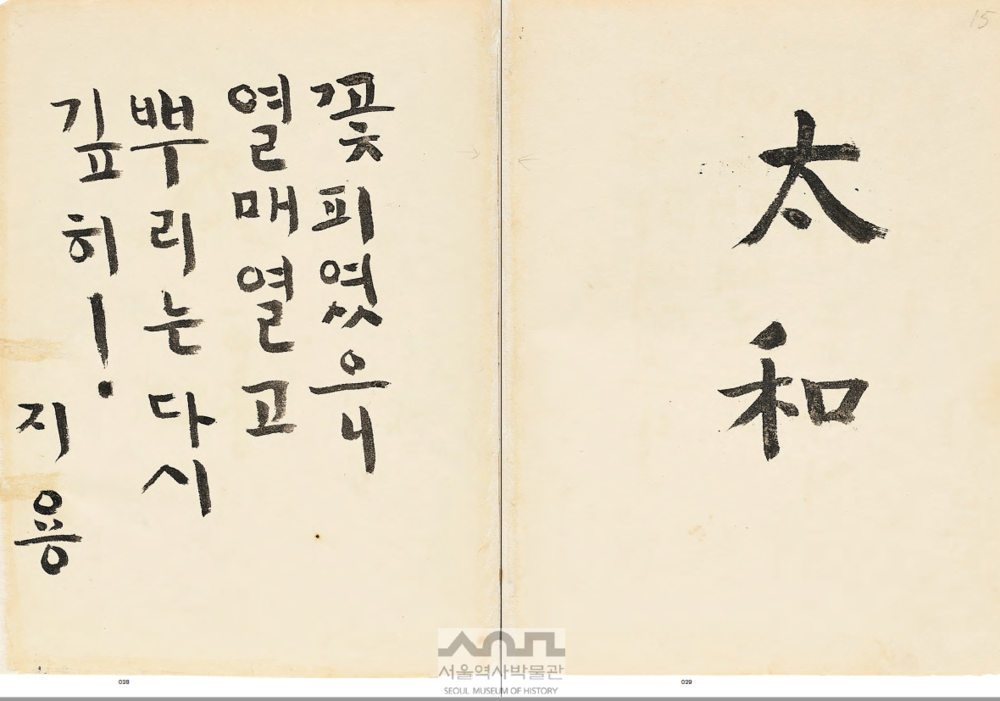 太和
꽃피였으니
열매열고
뿌리는다시
깊히!
지용
15
서울역사박물관
SEOUL MUSEUM OF HISTORY
028
029